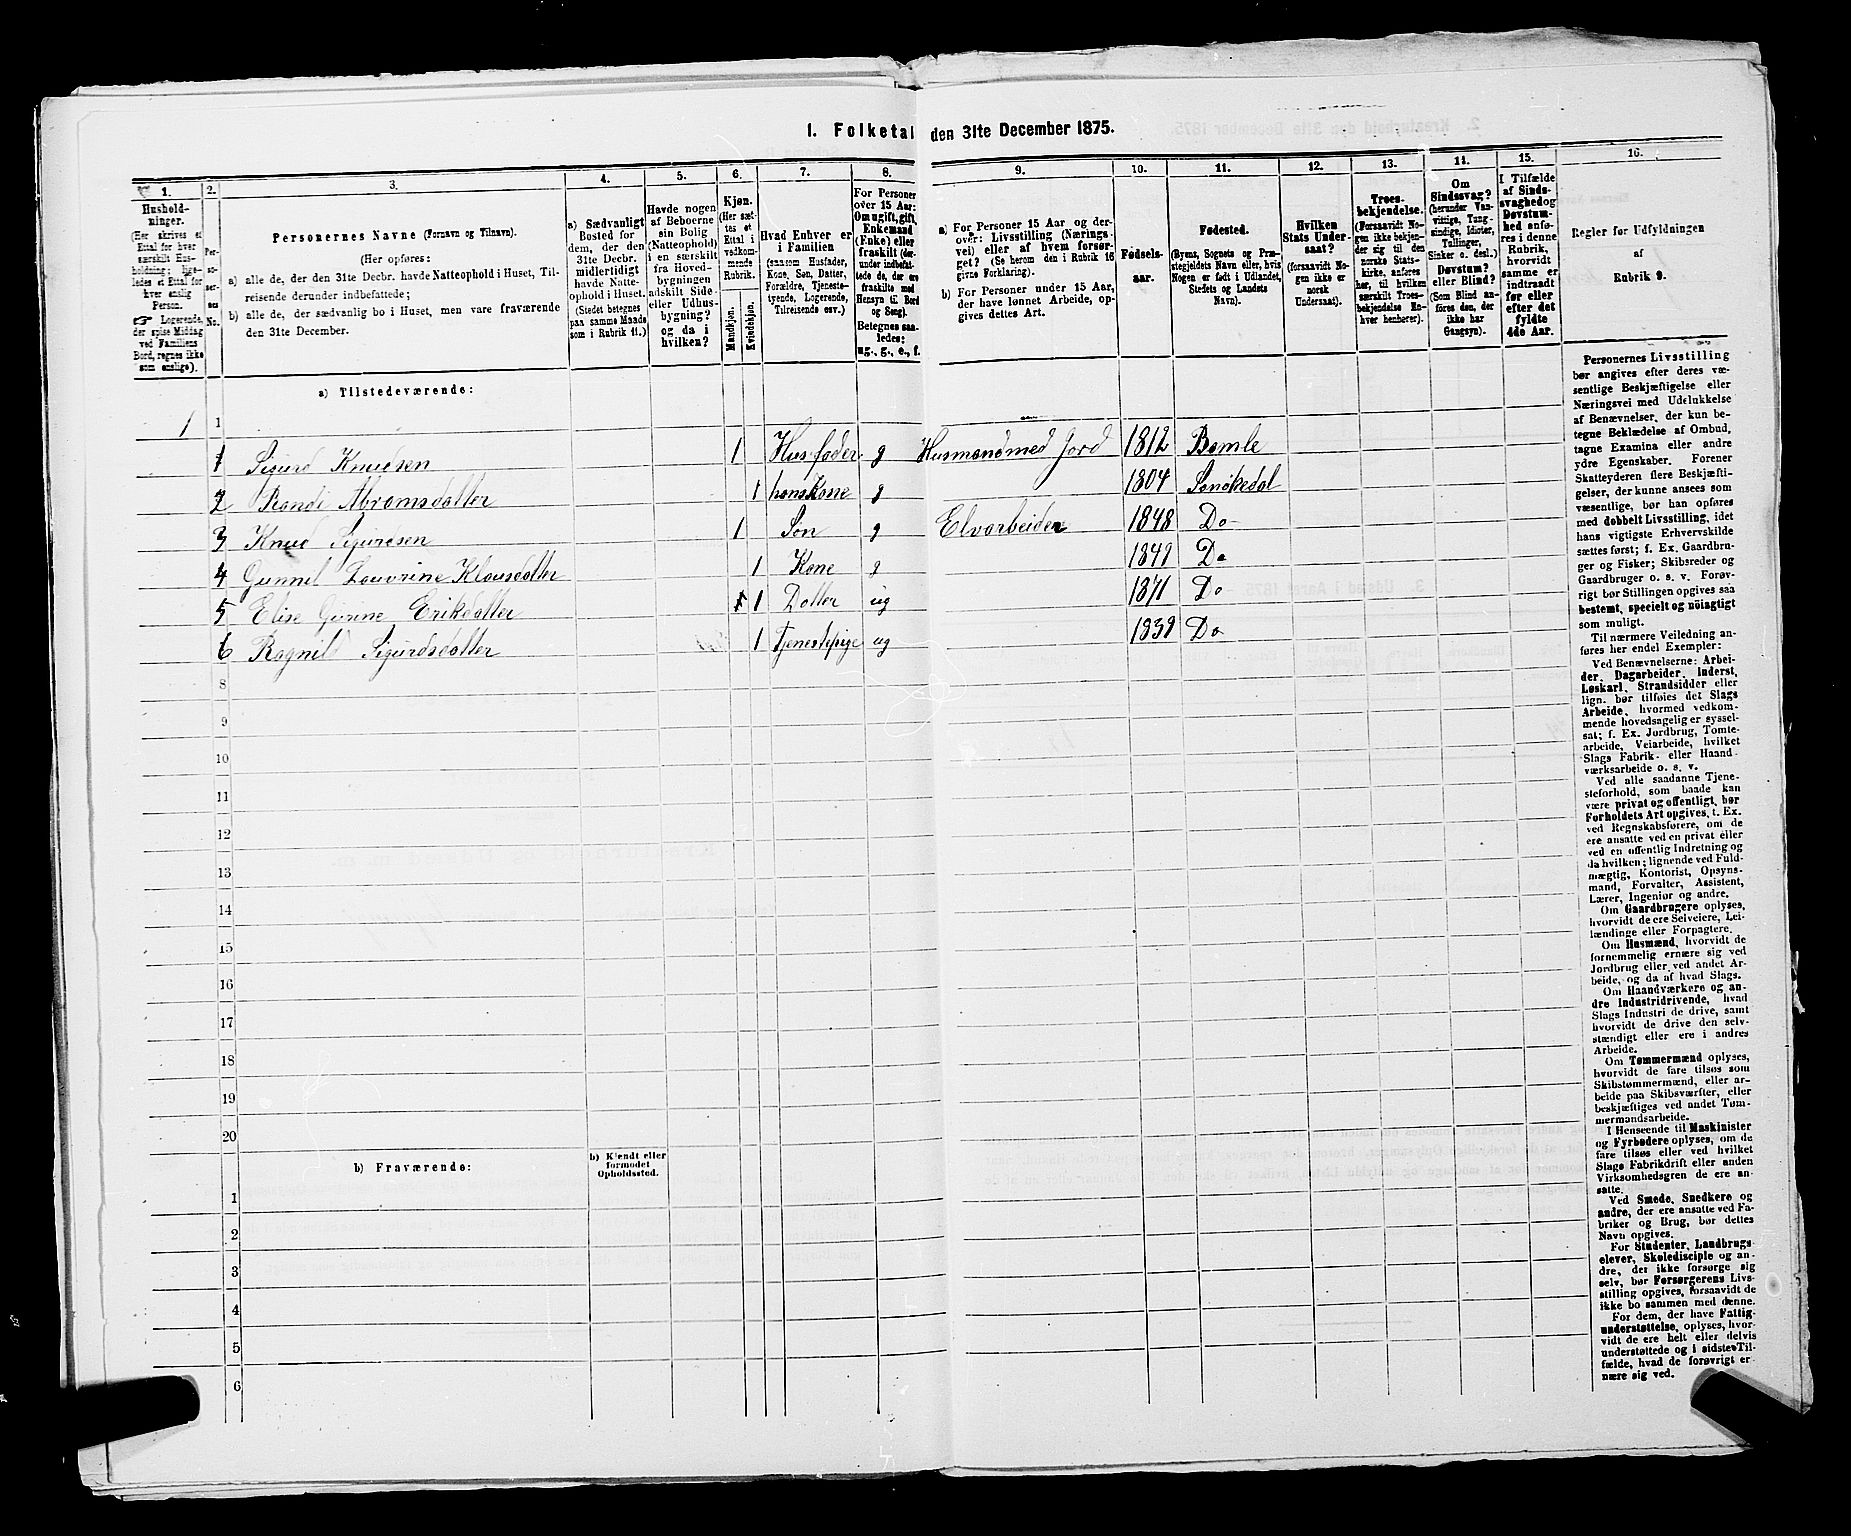 1. Folketal den 31te December 1875.
1. 2. 3. 4. 5. 6. 7. 8. 9. 10. 11. 12. 13. 14. 15. 16.
Hushold-
ninger.
(Her skrives et
Ettal for hver
særskilt Hus-
holdning; lige-
ledes et Ettal for
hver enslig
Person.
☞ Logerende,
der spise Middag
ved Familiens
Bord, regnes ikke
som enslige).
Per-
so-
ner-
nes
No.
Personernes Navne (Fornavn og Tilnavn).
(Her opføres:
a) alle de, der den 31te Decbr. havde Natteophold i Huset, Til-
reisende derunder indbefattede;
b) alle de, der sædvanlig bo i Huset, men vare fraværende
den 31te December.
a) Sædvanligt
Bosted for
dem, der den
31te Decbr.
midlertidigt
havde Natte-
ophold i Huset.
(Stedet betegnes
paa samme Maade
som i Rubrik 11.)
Havde nogen
af Beboerne
sin Bolig
(Natteophold)
i en særskilt
fra Hoved-
bygningen
adskilt Side-
eller Udhus-
bygning?
og da i
hvilken?
Kjøn.
(Her sæt-
tes et
Ettal i
vedkom-
mende
Rubrik.
Mandkjøn.
Kvindekjøn.
Hvad Enhver er
i Familien
(saasom Husfader,
Kone, Søn, Datter,
Forældre, Tjeneste-
tyende, Logerende,
Tilreisende osv.)
For Personer
over 15 Aar:
Om ugift, gift,
Enkemand
(Enke) eller
fraskilt (der-
under indbefat-
tede de, der ere
fraskilte med
Hensyn til Bord
og Seng).
Betegnes saa-
ledes:
ug., g., e., f.
a) For Personer 15 Aar og der-
over: Livsstilling (Nærings-
vei) eller af hvem forsør-
get? (Se herom den i Rubrik 16
givne Forklaring).
b) For Personer under 15 Aar,
der have lønnet Arbeide, op-
gives dettes Art.
Fødsels-
aar.
Fødested.
(Byens, Sognets og Præ-
stegjeldets Navn eller, hvis
Nogen er født i Udlandet,
Stedets og Landets
Navn).
Hvilken
Stats Under-
saat?
(forsaavidt No-
gen ikke er
norsk
Undersaat).
Troes-
bekjendelse.
(Forsaavidt No-
gen ikke bekjen-
der sig til den
norske Stats-
kirke, anføres
her, til hvilken
særskilt Troes-
bekjendelse En-
hver henhører).
Om
Sindssvag?
(herunder Van-
vittige, Tung-
sindige, Idioter,
Tullinger,
Sinker o. desl.)
Døvstum?
eller Blind?
(Som Blind an-
føres den, der
ikke har
Gangsyn).
I Tilfælde
af Sinds-
svaghed og
Døvstum-
hed anfø-
res i denne
Rubrik,
hvorvidt
samme er
indtraadt
før eller
efter det
fyldte
4de Aar.
Regler for Udfyldningen
af
Rubrik 9.
a) Tilstedeværende:
1 1
1 Sigurd Knudsen 1 Husfader g Husmand med Jord 1812 Bamle
2 Randi Abramsdatter 1 hans Kone g 1804 Sanøkedal
3 Knud Sigurdsen 1 Søn g Elvarbeider 1848 Do
4 Gunnil Lauvrine Klausdatter 1 Kone g 1849 Do
5 Elise Gurine Eriksdatter 1 Datter ug 1871 Do
6 Ragnild Sigurdsdatter 1 Tjenestepige ug 1839 Do
8
9
10
11
12
13
14
15
16
17
18
19
20
b) Fraværende:
b) Kjendt eller
formodet
Opholdssted.
1
2
3
4
5
6
Personernes Livsstilling
bør angives efter deres væ-
sentlige Beskjæftigelse eller
Næringsvei med Udelukkelse
af Benævnelser, der kun be-
tegne Beklædelse af Ombud,
tagne Examina eller andre
ydre Egenskaber. Forener
Skatteyderen flere Beskjæfti-
gelser, der kunne ansees som
væsentlige, bør han opføres
med dobbelt Livsstilling, idet
hans vigtigste Erhvervskilde
sættes først; f. Ex. Gaardbru-
ger og Fisker; Skibsreder og
Gaardbruger o. s. v. Forøv-
rigt bør Stillingen opgives saa
bestemt, specielt og nøiagtigt
som muligt.
Til nærmere Veiledning an-
føres her endel Exempler:
Ved Benævnelserne: Arbei-
der, Dagarbeider, Inderst,
Løskarl, Strandsidder eller
lign. bør tilføies det Slags
Arbeide, hvormed vedkom-
mende hovedsagelig er syssel-
sat; f. Ex. Jordbrug, Tomte-
arbeide, Veiarbeide, hvilket
Slags Fabrik- eller Haand-
værksarbeide o. s. v.
Ved alle saadanne Tjene-
steforhold, som baade kan
være privat og offentligt, bør
Forholdets Art opgives, t. Ex.
ved Regnskabsførere, om de
ere ansatte ved en privat eller
ved en offentlig Indretning og
da hvilken; lignende ved Fuld-
mægtig, Kontorist, Opsyns-
mand, Forvalter, Assistent,
Lærer, Ingeniør og andre.
Om Gaardbrugere oplyses,
hvorvidt de ere Selveiere, Lei-
lændinge eller Forpagtere.
Om Husmænd, hvorvidt de
fornemmelig ernære sig ved
Jordbrug eller ved andet Ar-
beide, og da af hvad Slags.
Om Haandværkere og an-
dre Industridrivende, hvad
Slags Industri de drive, samt
hvorvidt de drive den selv-
stændigt eller ere i andres
Arbeide.
Om Tømmermænd oplyses,
hvorvidt de fare tilsøs som
Skibstømmermænd, eller ar-
beide paa Skibsværfter, eller
beskjæftiges ved andet Tøm-
mermandsarbeide.
I Henseende til Maskinister
og Fyrbødere oplyses, om de
fare tilsøs eller ved hvilket
Slags Fabrikdrift eller anden
Virksomhedsgren de ere an-
satte.
Ved Smede, Snedkere og
andre, der ere ansatte ved Fa-
briker og Brug, bør dettes
Navn opgives.
For Studenter, Landbrugs-
elever, Skoledisciple og an-
dre, der ikke forsørge sig
selv, bør Forsørgerens Livs-
stilling opgives, forsaavidt de
ikke bo sammen med denne.
For dem, der have Fattig-
understøttelse, oplyses, hvor-
vidt de ere helt eller delvis
understøttede og i sidste Til-
fælde, hvad de forøvrigt er-
nære sig ved.